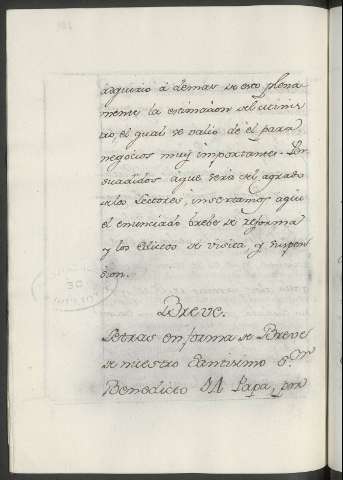 adquirio à demas de esto plena
mente la estimacion del Minis
tro, el qual se valio de él para
negocios muy importantes. Per
suadidos aque será del agrado
de los Lectores, insertamos aqui
el enunciado brebe de reforma
y los edictos de visita, y suspen
sion.
Breve.
Letras en forma de Breve
de nuestro Santisimo S.or
Benedicto Papa, por